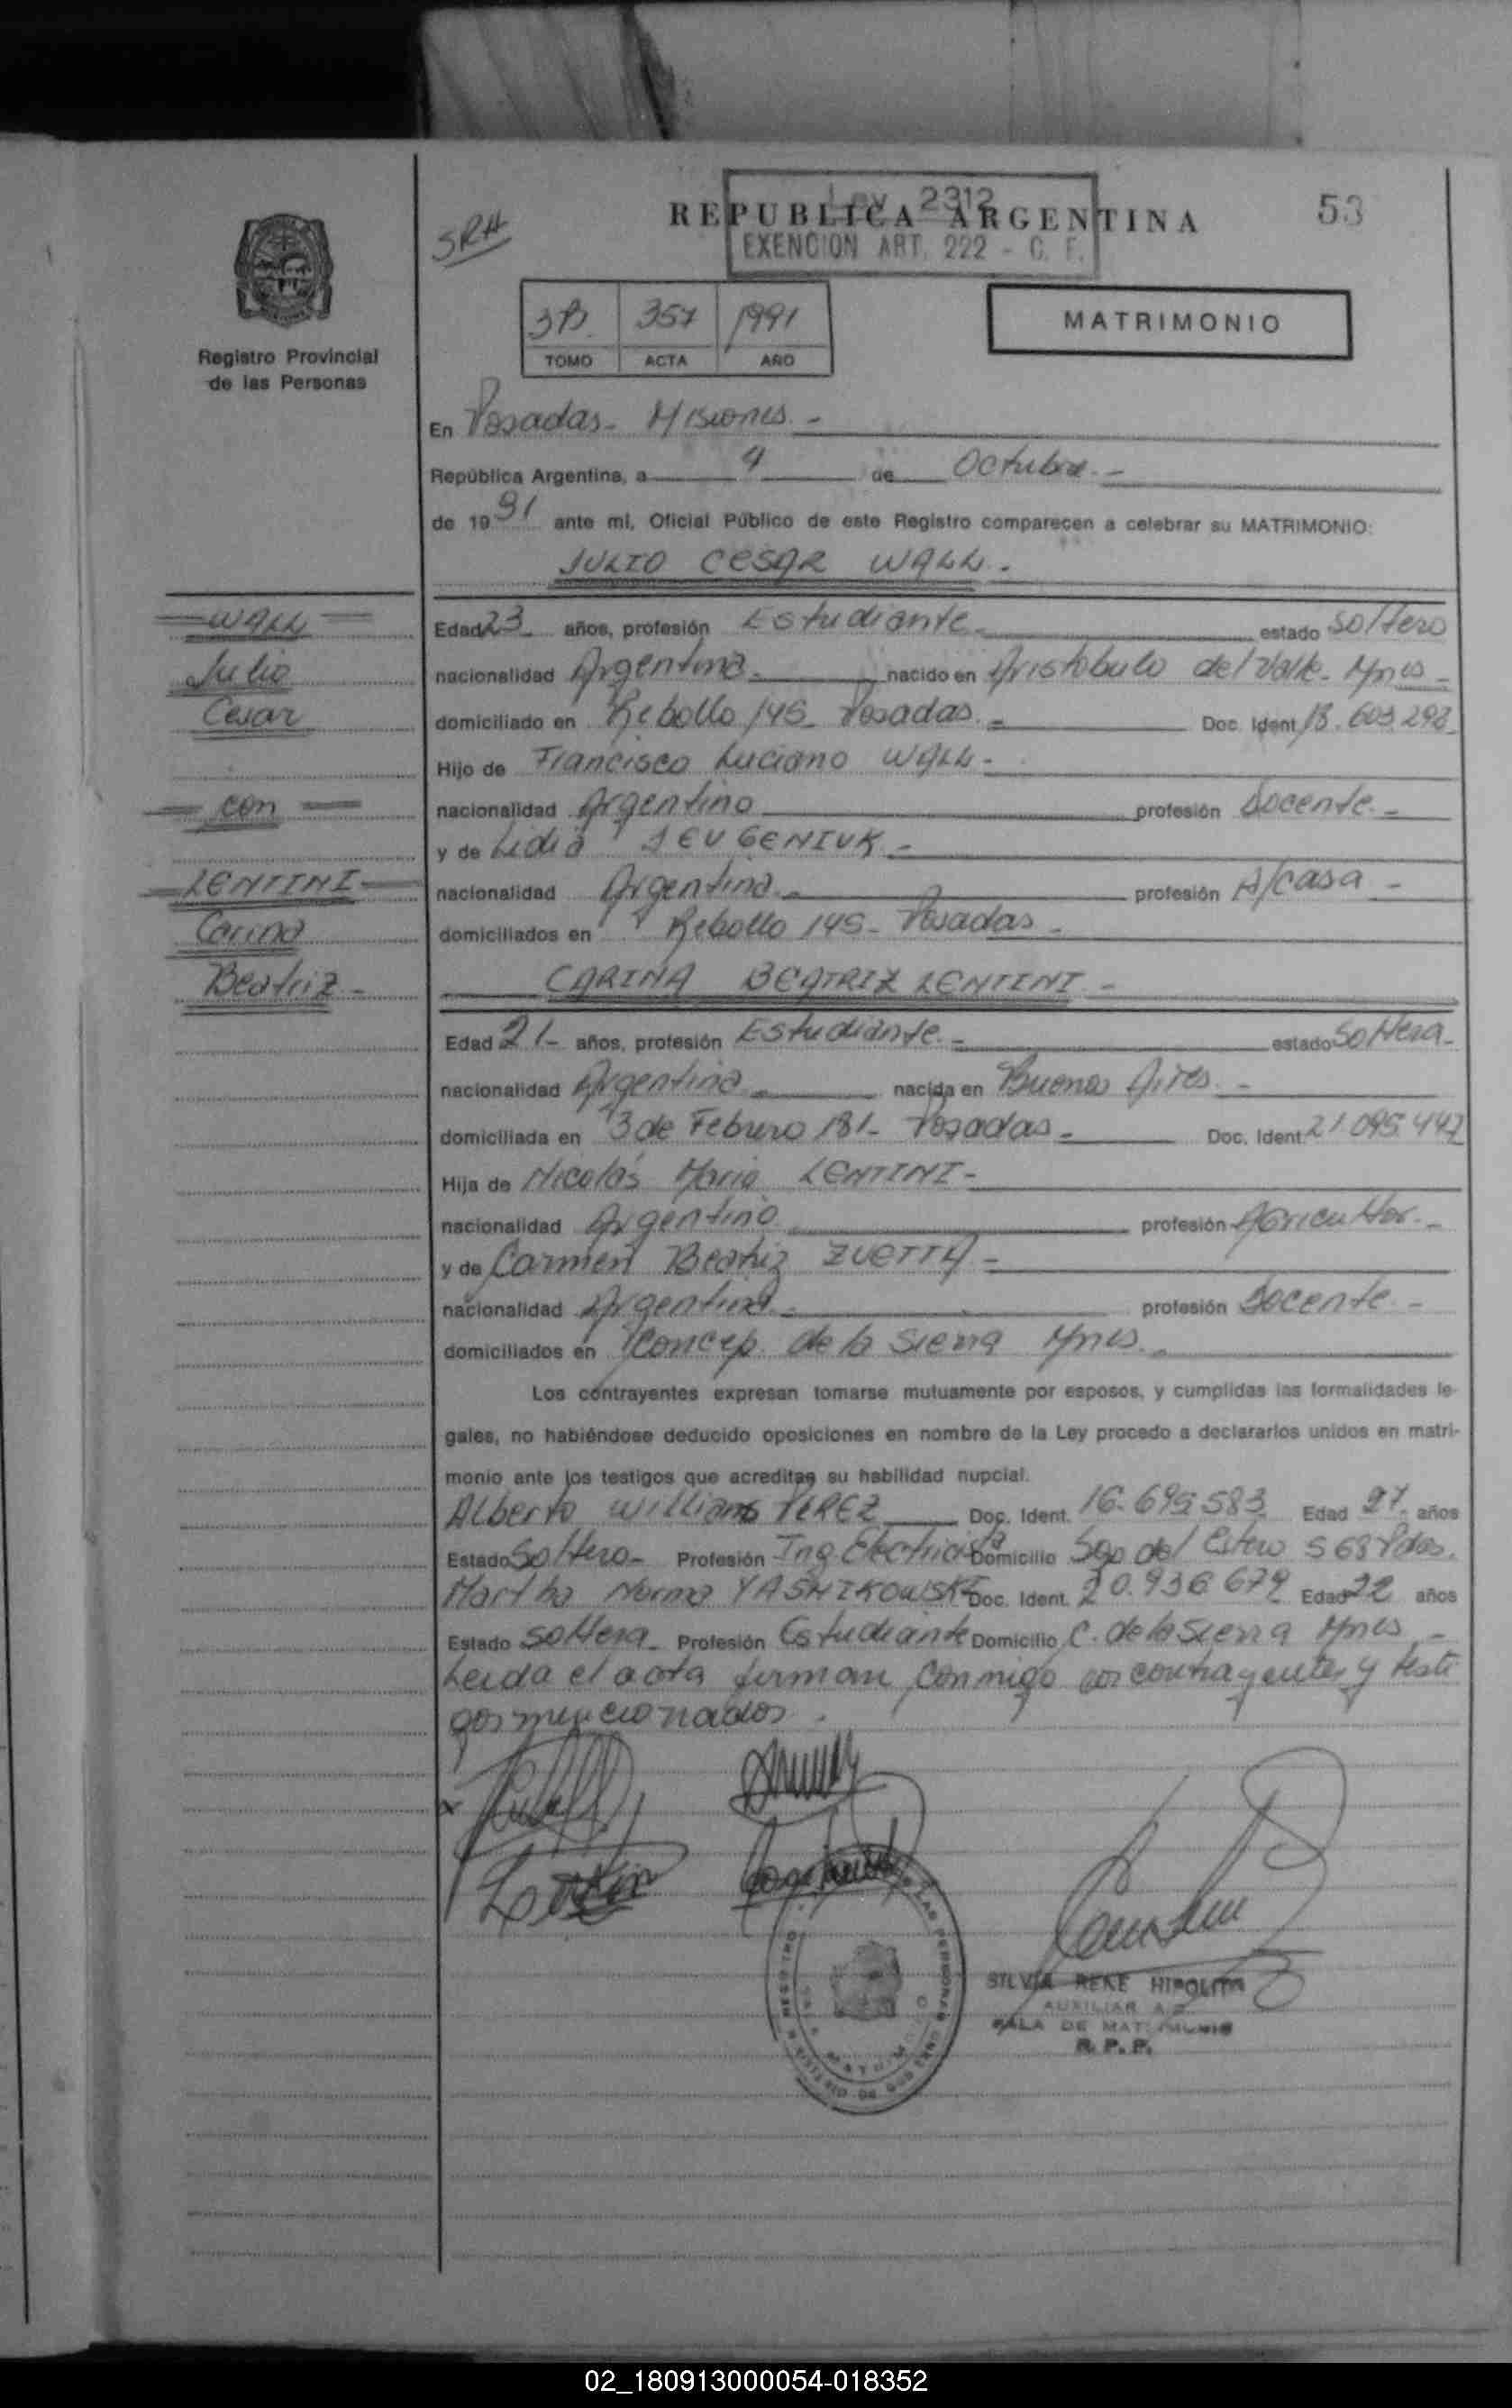 Ley 2312
REPUBLICA ARGENTINA
53
EXENCION ART. 222 - C. F.
SRH
3B. 357 1991
TOMO ACTA AÑO
MATRIMONIO
Registro Provincial
de las Personas
En Posadas - Misiones. -
República Argentina, a 9 de Octubre. -
de 1991 ante mi, Oficial Público de este Registro comparecen a celebrar su MATRIMONIO:
JULIO CESAR WALL. -
WALL
Julio
Cesar
con
LENTINI
Carina
Beatriz -
Edad 23 años, profesión Estudiante - estado Soltero
nacionalidad Argentina - nacido en Aristobulo del Valle - Mnes -
domiciliado en Rebollo 145 - Posadas. - Doc. Ident. 18.603.292
Hijo de Francisco Luciano WALL -
nacionalidad Argentino profesión Docente. -
y de Lidia IEVGENIUK -
nacionalidad Argentina - profesión A/casa -
domiciliados en Rebollo 145 - Posadas -
CARINA BEATRIZ LENTINI -
Edad 21 - años, profesión Estudiante. - estado Soltera -
nacionalidad Argentina - nacida en Buenos Aires. -
domiciliada en 3 de Febrero 181 - Posadas - Doc. Ident. 21.095.447
Hija de Nicolás Mario LENTINI -
nacionalidad Argentino profesión Agricultor. -
y de Carmen Beatriz ZUETTA -
nacionalidad Argentina - profesión Docente -
domiciliados en Concep. de la Sierra Mnes. -
Los contrayentes expresan tomarse mutuamente por esposos, y cumplidas las formalidades le-
gales, no habiéndose deducido oposiciones en nombre de la Ley procedo a declararlos unidos en matri-
monio ante los testigos que acreditan su habilidad nupcial.
Alberto Williams PEREZ Doc. Ident. 16.695.583 Edad 27 años
Estado Soltero - Profesión Ing. Electricista Domicilio Sgo del Estero 568 Pdas.
Martha Norma YASNIKOWSKI Doc. Ident. 20.936.679 Edad 22 años
Estado Soltera - Profesión Estudiante Domicilio C. de la Sierra Mnes -
Leida el acta firman conmigo los contrayentes y testi
gos mencionados.
SILVIA RENE HIPOLITO
AUXILIAR
SALA DE MATRIMONIO
R. P. P.
02_180913000054-018352